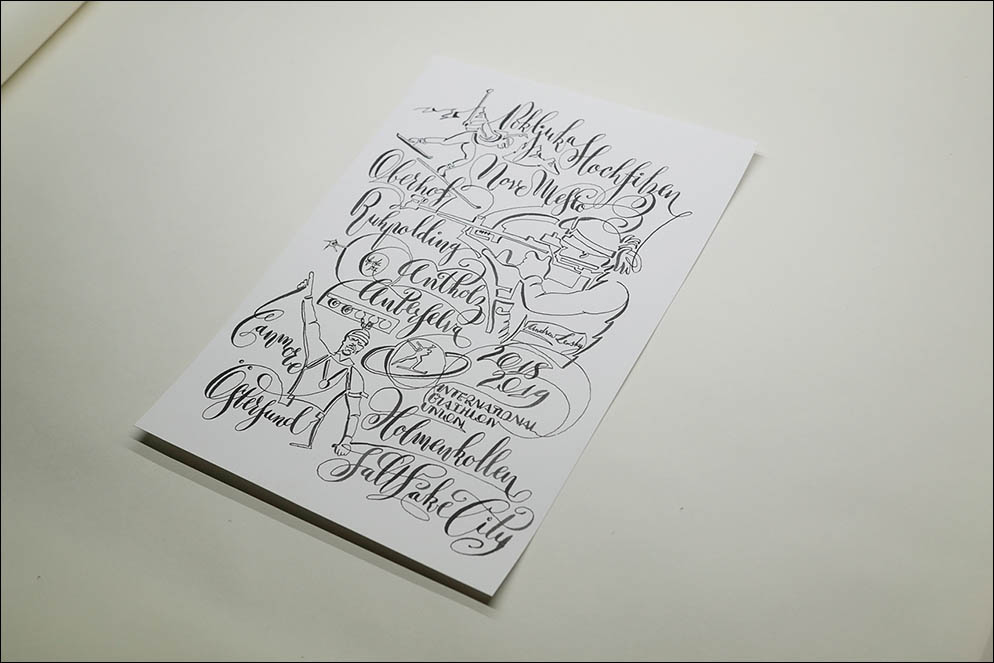 Pokljuka
Hochfilzen
Nove Mesto
Oberhof
Ruhpolding
Antholz
Anterselva
Canmore
Östersund
2018
2019
INTERNATIONAL
BIATHLON
UNION
Holmenkollen
Salt Lake City